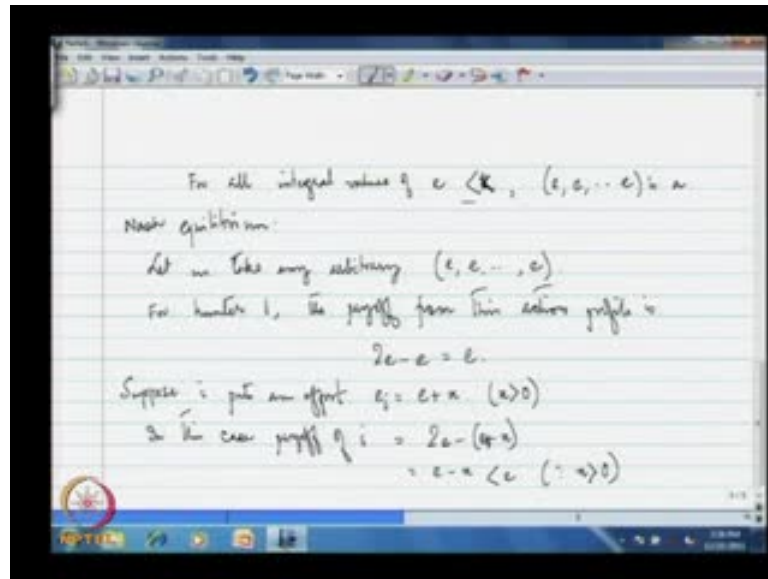 For all integral values of e ≤ K, (e, e, ... e) is a
Nash equilibrium.
Let us take any arbitrary (e, e ..., e).
For hunter 1, the payoff from this action profile is
2e - e = e.
Suppose i puts an effort ei = e + x (x>0)
In this case payoff of i = 2e - (e + x)
= e - x < e (∵ x>0)
NPTEL